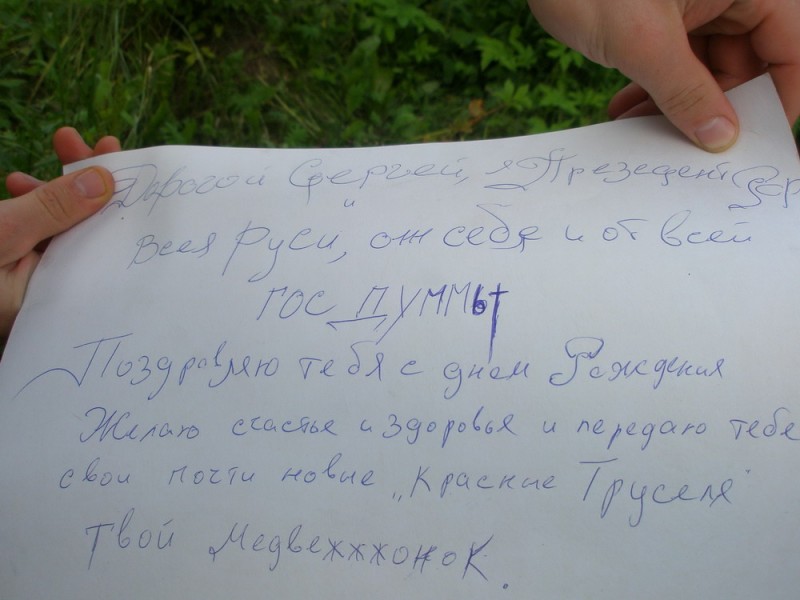 Дорогой Сергей, я Президент Зар
и
всея Руси, от себя и от всей
ГОС ДУММЫ
Поздравляю тебя с днем Рождения
Желаю счастье и здоровья и передаю тебе
свои почти новые „Красные Труселя"
Твой Медвежххонок.